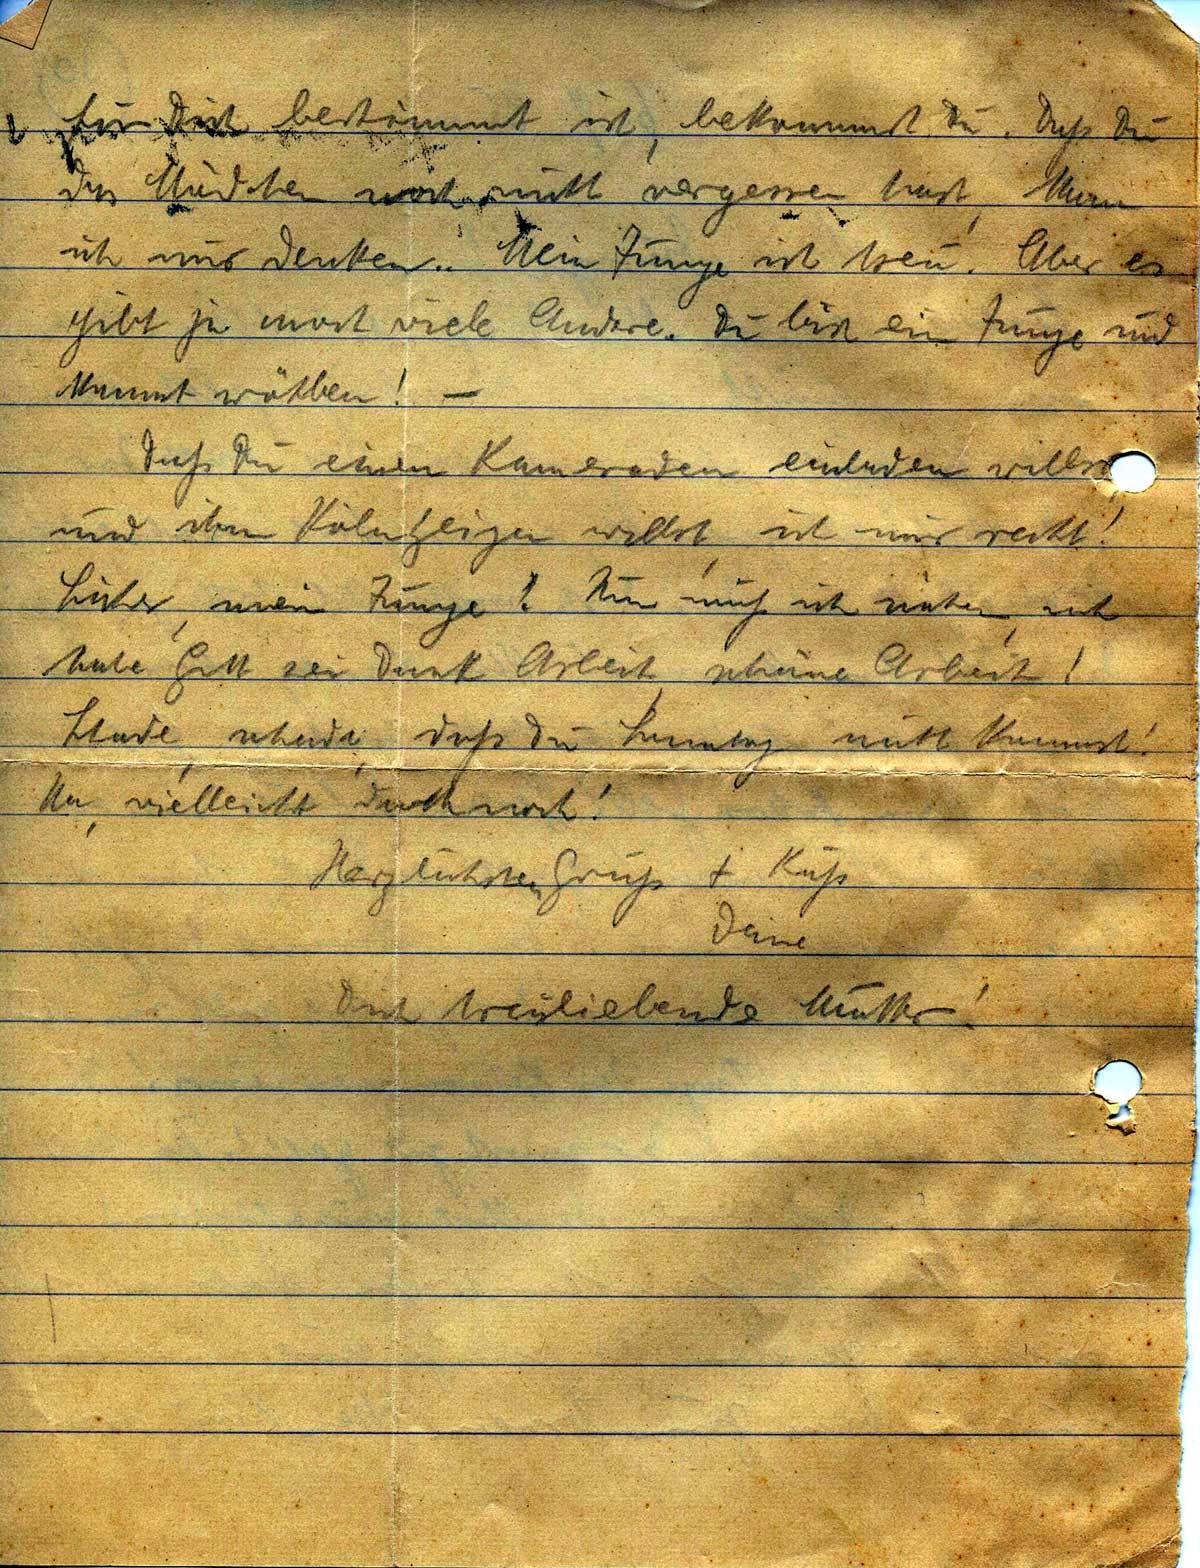 für Dich bestimmt ist, bekommst Du. Daß Du
das Mädchen noch nicht vergessen hast, kann
ich mir denken.. Mein Junge ist treu. Aber es
gibt ja noch viele Andere. Du bist ein Junge und
kannst wählen! —
Daß Du einen Kameraden einladen willst
und ihm Köln zeigen willst, ist mir recht!
Sicher, mein Junge! Nun muß ich nähen, ich
habe Gott sei Dank Arbeit, schöne Arbeit!
Schade, schade, daß Du Sonntag nicht kommst!
Na, vielleicht doch noch!
Herzlichsten Gruß + Kuß
Deine
Dich treuliebende Mutter!